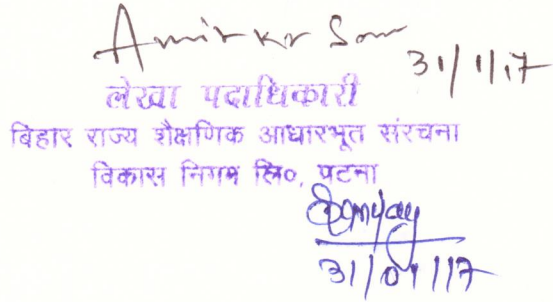 Amir kr Som
31/1/17
लेखा पदाधिकारी
बिहार राज्य शैक्षणिक आधारभूत संरचना
विकास निगम लि०, पटना
31/01/17